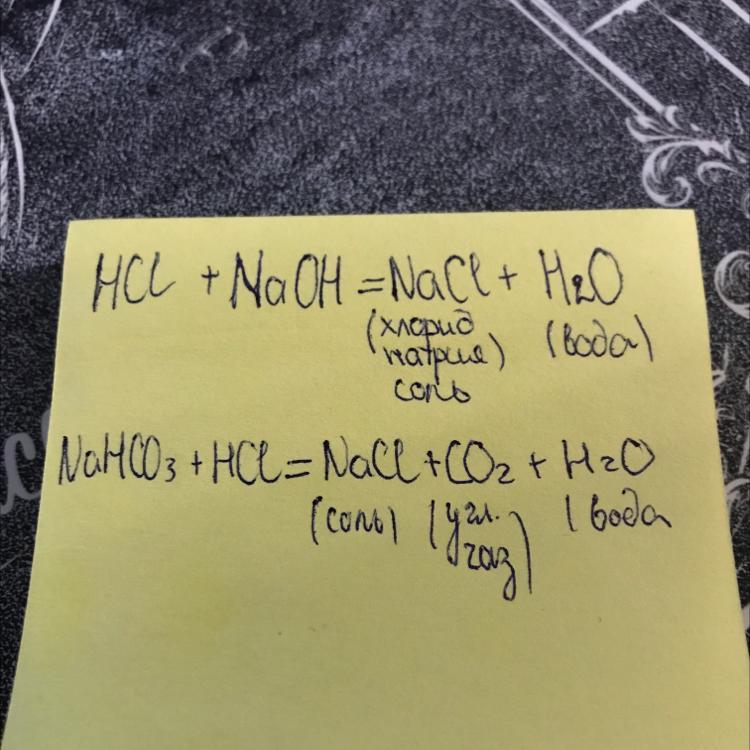 HCl + NaOH = NaCl + H2O
(хлорид натрия) соль (вода)
NaHCO3 + HCl = NaCl + CO2 + H2O
(соль) (угл. газ) (вода